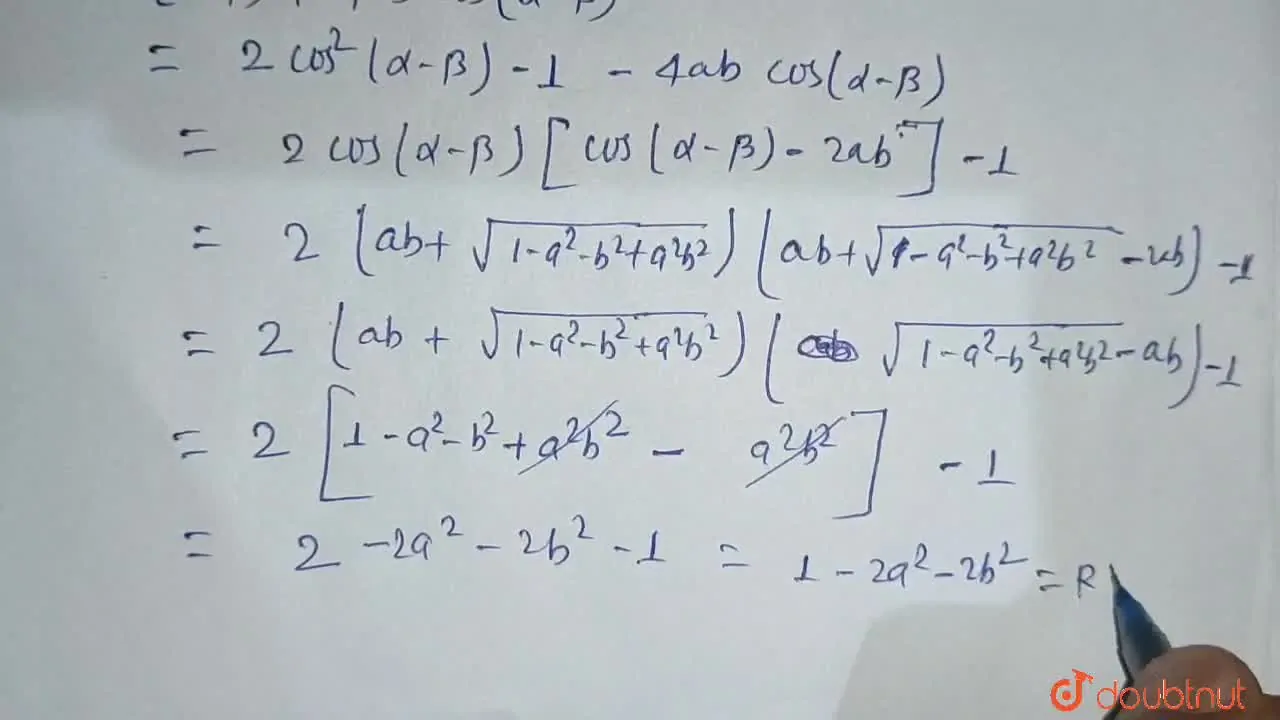 = 2 cos² (α-β) - 1 - 4ab cos(α-β)
= 2 cos(α-β) [cos(α-β) - 2ab] - 1
= 2 (ab + √(1-a²-b²+a²b²)) (ab + √(1-a²-b²+a²b²) - 2ab) - 1
= 2 (ab + √(1-a²-b²+a²b²)) (√(1-a²-b²+a²b²) - ab) - 1
= 2 [1 - a² - b² + a²b² - a²b²] - 1
= 2 - 2a² - 2b² - 1 = 1 - 2a² - 2b² = R
doubtnut